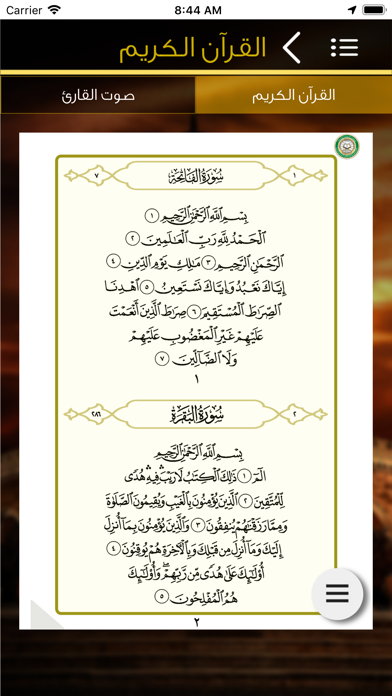 Carrier 8:44 AM
القرآن الكريم
صوت القارئ القرآن الكريم
١ سُورَةُ الفَاتِحَةِ ٧
بِسْمِ اللَّهِ الرَّحْمَٰنِ الرَّحِيمِ ١
الْحَمْدُ لِلَّهِ رَبِّ الْعَالَمِينَ ٢
الرَّحْمَٰنِ الرَّحِيمِ ٣ مَالِكِ يَوْمِ الدِّينِ ٤
إِيَّاكَ نَعْبُدُ وَإِيَّاكَ نَسْتَعِينُ ٥ اهْدِنَا
الصِّرَاطَ الْمُسْتَقِيمَ ٦ صِرَاطَ الَّذِينَ أَنْعَمْتَ
عَلَيْهِمْ غَيْرِ الْمَغْضُوبِ عَلَيْهِمْ
وَلَا الضَّالِّينَ ٧
١
٢ سُورَةُ البَقَرَةِ ٢٨٦
بِسْمِ اللَّهِ الرَّحْمَٰنِ الرَّحِيمِ
الٓمٓ ١ ذَٰلِكَ الْكِتَٰبُ لَا رَيْبَ ۛ فِيهِ ۛ هُدًى
لِّلْمُتَّقِينَ ٢ الَّذِينَ يُؤْمِنُونَ بِالْغَيْبِ وَيُقِيمُونَ الصَّلَوٰةَ
وَمِمَّا رَزَقْنَٰهُمْ يُنفِقُونَ ٣ وَالَّذِينَ يُؤْمِنُونَ بِمَا أُنزِلَ
إِلَيْكَ وَمَا أُنزِلَ مِن قَبْلِكَ وَبِالْآخِرَةِ هُمْ يُوقِنُونَ ٤
أُولَٰئِكَ عَلَىٰ هُدًى مِّن رَّبِّهِمْ ۖ وَأُولَٰئِكَ
هُمُ الْمُفْلِحُونَ ٥
٢